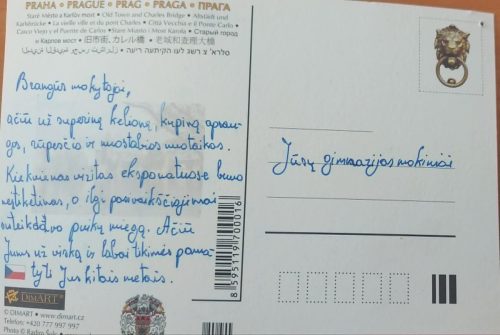 PRAHA • PRAGUE • PRAG • PRAGA • ПРАГА
Staré Město a Karlův most • Old Town and Charles Bridge • Altstadt und
Karlsbrücke • La vieille ville et du pont Charles • Città Vecchia e il Ponte Carlo •
Casco Viejo y el Puente de Carlos • Stare Miasto i Most Karola • Старый город
и Карлов мост • 旧市街, カレル橋 •
Brangūs mokytojai,
ačiū už superinę kelionę, kupiną apran-
gos, rūpesčio ir nuostabios nuotaikos.
Kiekvienas vizitas eksponatuose buvo
neįtikėtinas, o ilgi pasivaikščiojimai
suteikdavo puikų miegą. Ačiū
Jums už viską ir labai tikimės pama-
tyti Jus kitais metais.
Jūsų gimnazijos mokiniai
8595119700016
DIMART
© DIMART • www.dimart.cz
Telefon: +420 777 997 997
Photo ©